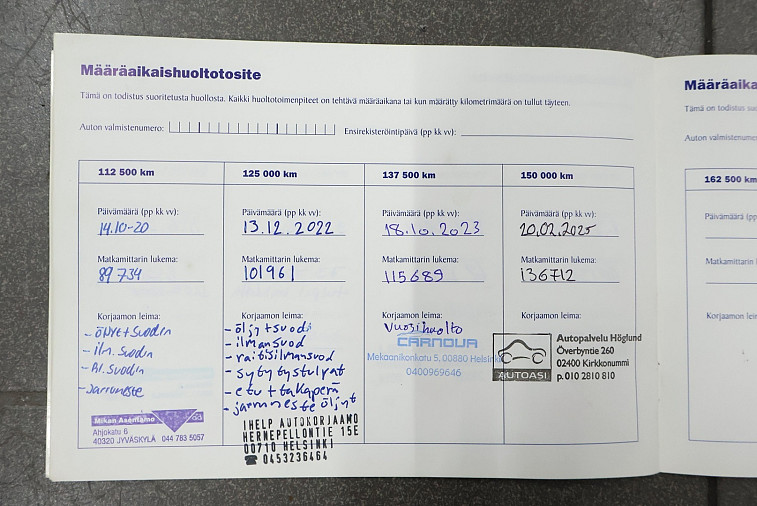 Määräaikaishuoltotosite
Tämä on todistus suoritetusta huollosta. Kaikki huoltotoimenpiteet on tehtävä määräaikana tai kun määrätty kilometrimäärä on tullut täyteen.
Auton valmistenumero:
Ensirekisteröintipäivä (pp kk vv):
112 500 km
Päivämäärä (pp kk vv):
14.10-20
Matkamittarin lukema:
89734
Korjaamon leima:
- öljyt+suodin
- ilm. suodin
- Al. suodin
- Jarruneste
Mikan Asentamo
Ahjokatu 6
40320 JYVÄSKYLÄ 044 783 5057
125 000 km
Päivämäärä (pp kk vv):
13.12.2022
Matkamittarin lukema:
101961
Korjaamon leima:
- öljy+suod
- ilmansuod
- raitisilmansuod
- sytytystulpat
- etu + takaperä
- jarruneste öljyt
IHELP AUTOKORJAAMO
HERNEPELLONTIE 15E
00710 HELSINKI
☎ 0453236464
137 500 km
Päivämäärä (pp kk vv):
18.10.2023
Matkamittarin lukema:
115689
Korjaamon leima:
Vuosihuolto
CARNOVA
Mekaanikonkatu 5, 00880 Helsinki
0400969646
150 000 km
Päivämäärä (pp kk vv):
20.02.2025
Matkamittarin lukema:
136712
Korjaamon leima:
AUTOASI
Autopalvelu Höglund
Överbyntie 260
02400 Kirkkonummi
p. 010 2810 810
Määräaika
Tämä on todistus suo
Auton valmistenume
162 500 km
Päivämäärä (pp
Matkamittarin l
Korjaamon lei